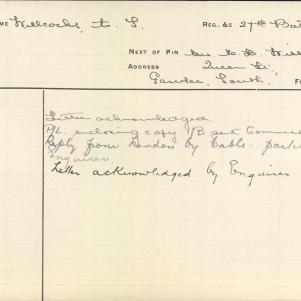 ME Willcocks, t. L. REG. &C 27th Bat
NEXT OF KIN L. H. Will
ADDRESS Queen St,
Gawler South. F
Letter acknowledged.
P/L enclosing copy /B sent Comm
Reply from London by Cable
Enquirer
Letter acknowledged by Enquirer